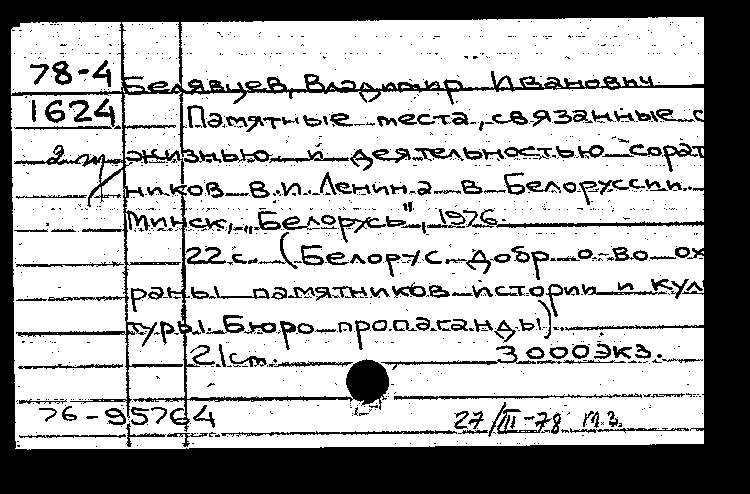 78-4 Белявцев, Владимир Иванович
1624 Памятные места, связанные с
2 жизнью и деятельностью сорат
ников В.И. Ленина в Белоруссии.
Минск, „Беларусь", 1976.
22 с. (Белорус. добр. о-во ох
раны памятников истории и куль
туры. Бюро пропаганды)
21 см. 3 000 экз.
76-95764 27/III-78